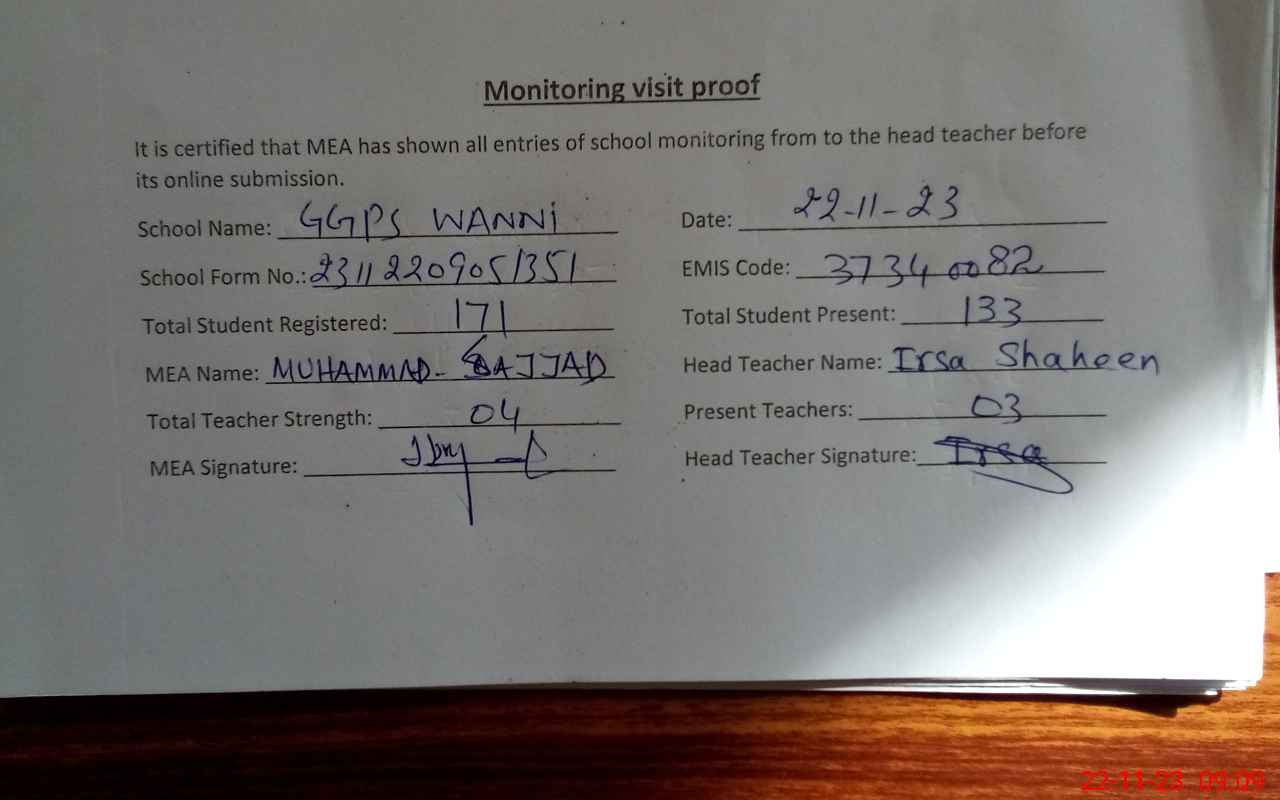 Monitoring visit proof
It is certified that MEA has shown all entries of school monitoring from to the head teacher before
its online submission.
School Name: GGPS WANNi Date: 22-11-23
School Form No.: 23112209051351 EMIS Code: 37340082
Total Student Registered: 171 Total Student Present: 133
MEA Name: MUHAMMAD- SAJJAD Head Teacher Name: Irsa Shaheen
Total Teacher Strength: 04 Present Teachers: 03
MEA Signature: Head Teacher Signature: Irsa
22-11-23 09:09